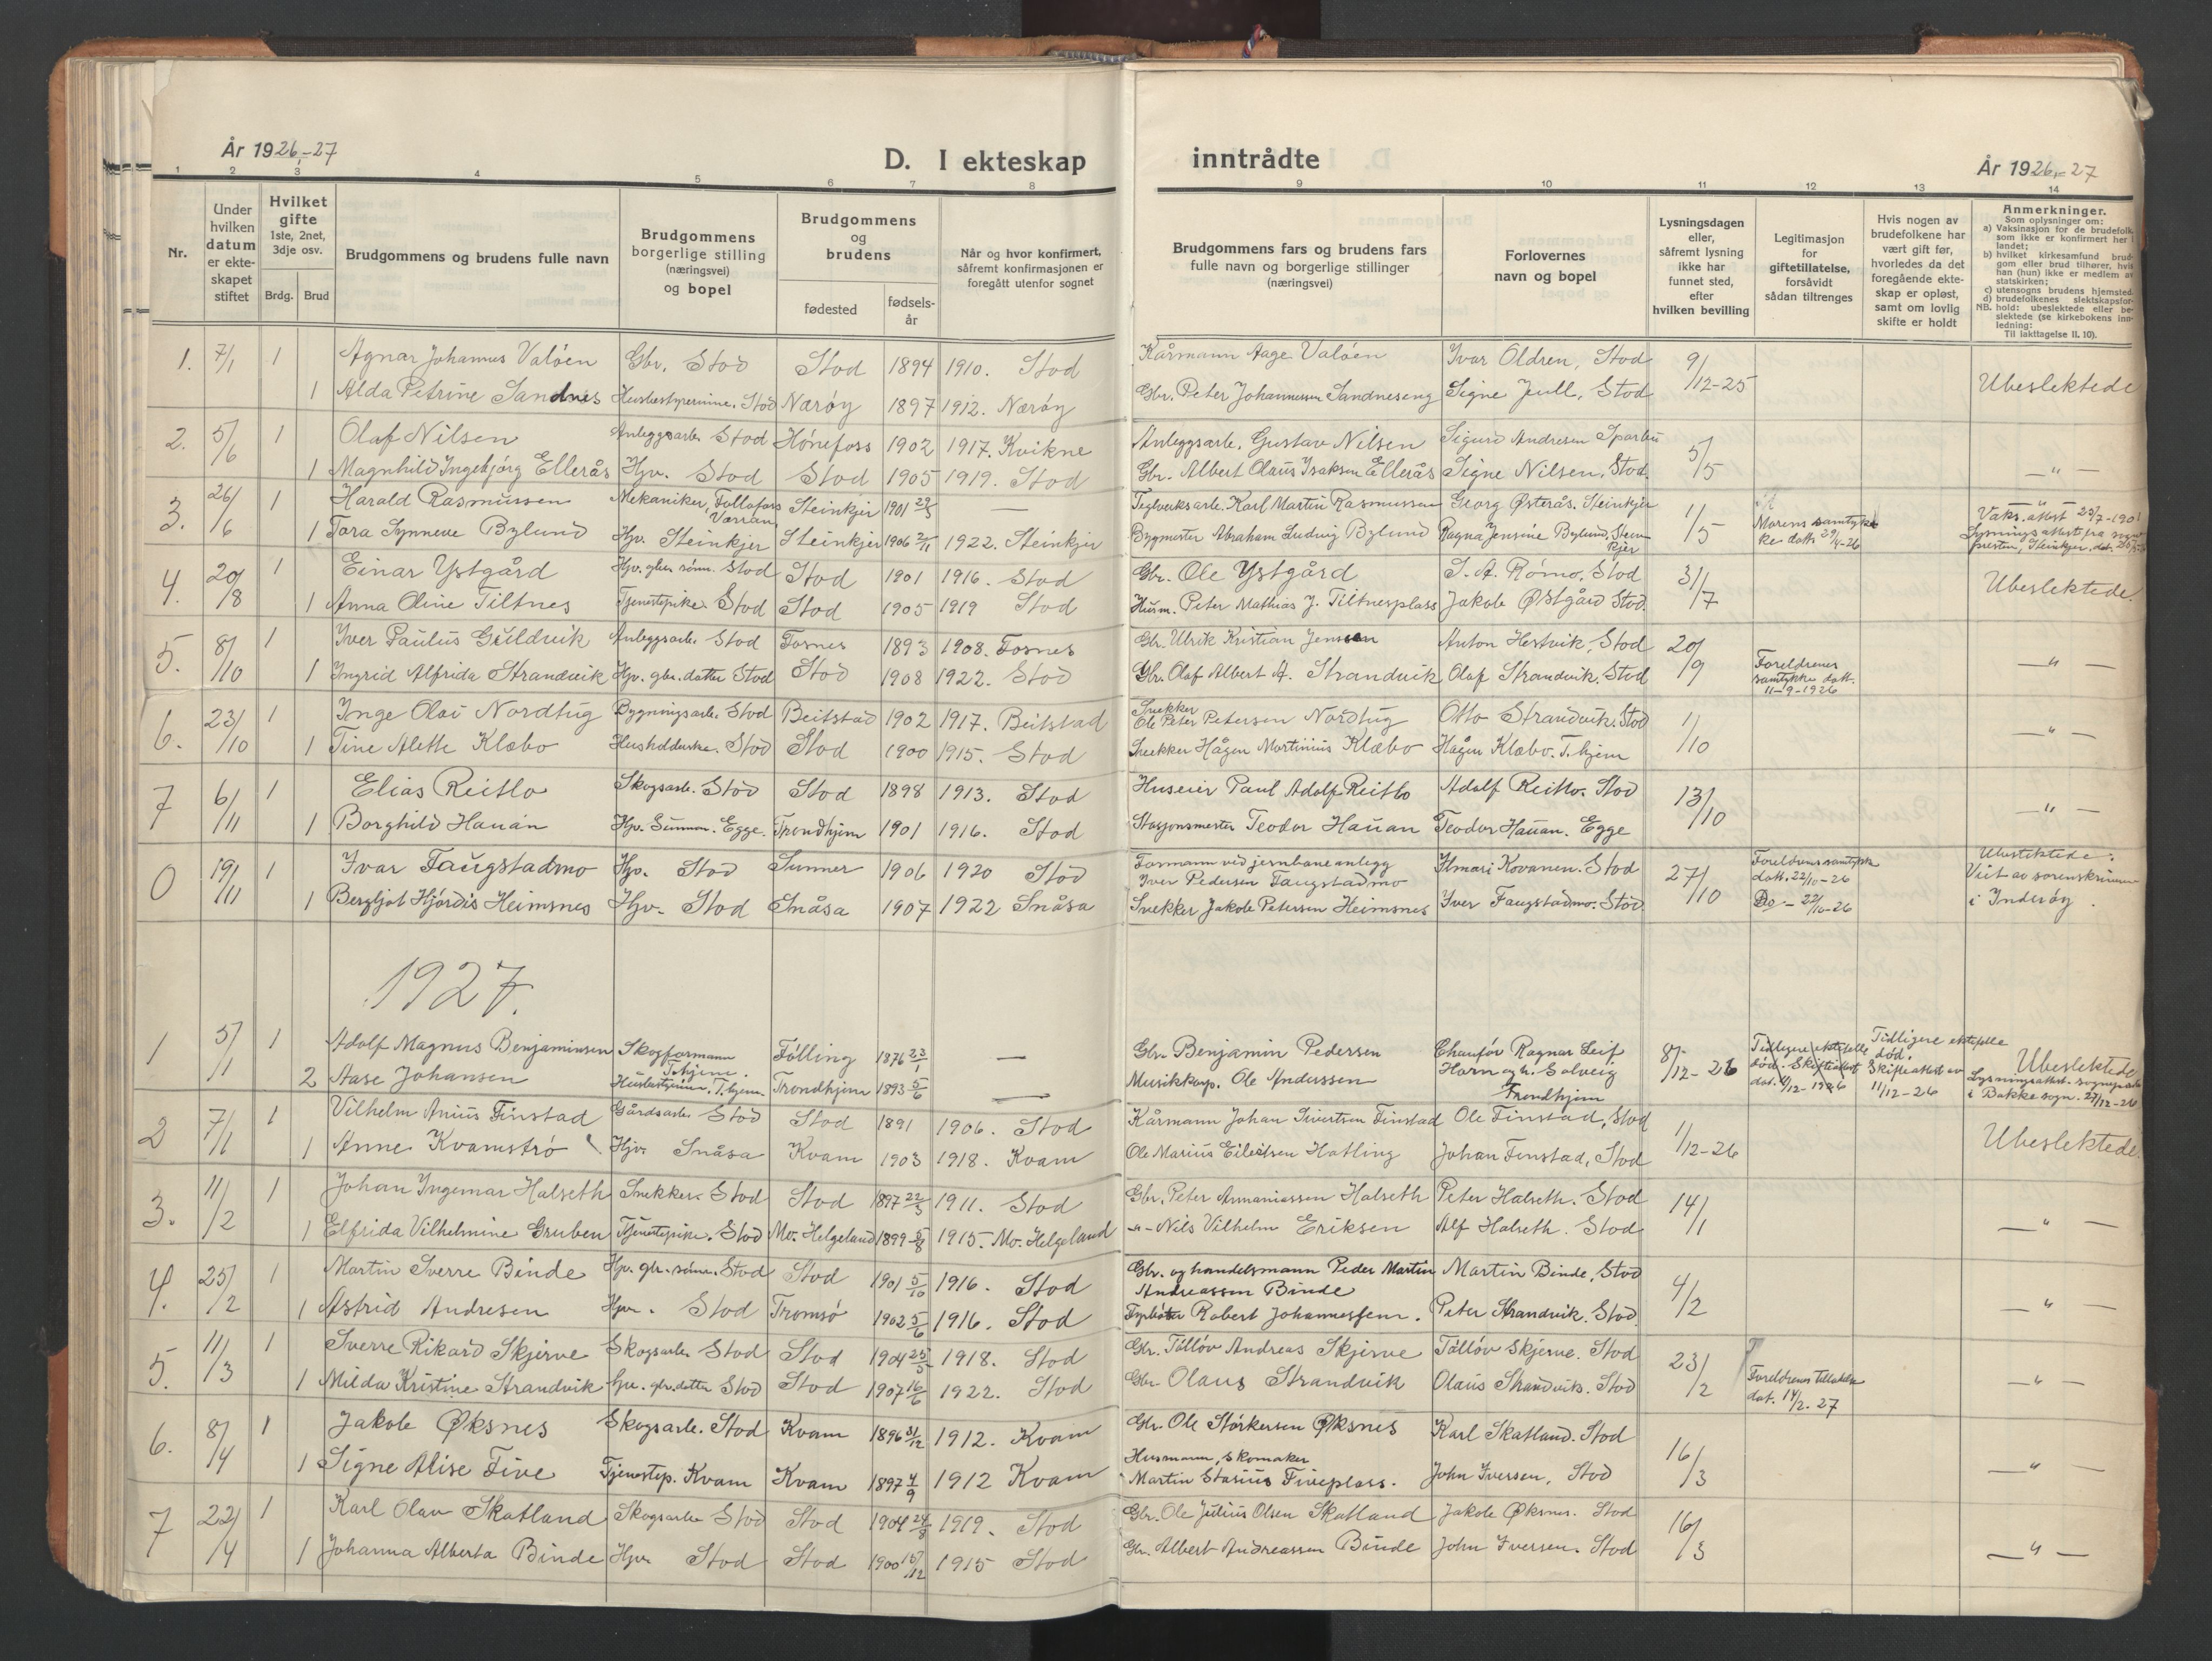 År 1926-27
D. I ekteskap
inntrådte
År 1926-27
1 2 3 4 5 6 7 8 9 10 11 12 13 14
Nr.
Under hvilken datum er ekteskapet stiftet
Hvilket gifte
1ste, 2net, 3dje osv.
Brdg. Brud
Brudgommens og brudens fulle navn
Brudgommens borgerlige stilling (næringsvei) og bopel
Brudgommens og brudens
fødested
fødselsår
Når og hvor konfirmert, såfremt konfirmasjonen er foregått utenfor sognet
Brudgommens fars og brudens fars fulle navn og borgerlige stillinger (næringsvei)
Forlovernes navn og bopel
Lysningsdagen eller, såfremt lysning ikke har funnet sted, efter hvilken bevilling
Legitimasjon for giftetillatelse, forsåvidt sådan tiltrenges
Hvis nogen av brudefolkene har vært gift før, hvorledes da det foregående ekteskap er opløst, samt om lovlig skifte er holdt
Anmerkninger.
Som oplysninger om:
a) Vaksinasjon for de brudefolk som ikke er konfirmert her i landet;
b) hvilket kirkesamfund brudgom eller brud tilhører, hvis han (hun) ikke er medlem av statskirken;
c) utensogns brudens hjemsted.
d) brudefolkenes slektskapsforhold: ubeslektede eller beslektede (se kirkebokens innledning:
NB. Til iakttagelse II. 10).
1. 7/1 1 Agnar Johannus Valöen Gbr. Stod Stod 1894 1910. Stod Kårmann Aage Valöen Ivar Oldren, Stod 9/12-25 Ubeslektede
1 Alda Petrine Sandnes Husbestyrerinne. Stod Nærøy 1897 1912. Nærøy Gbr. Peter Johannessen Sandneseng Signe Jull, Stod
2. 5/6 1 Olaf Nilsen Anleggsarb. Stod Hønefoss 1902 1917. Kvikne Anleggsarb. Gustav Nilsen Sigurd Andresen Sparbu 5/5 — " —
1 Magnhild Ingebjørg Ellerås Hjv. Stod Stod 1905 1919. Stod Gbr. Albert Olaus Isaksen Ellerås Signe Nilsen, Stod.
3. 26/6 1 Harald Rasmussen Mekaniker, Follafoss Værran Steinkjer 1901 — Teglverksarb. Karl Martin Rasmussen Georg Østerås. Steinkjer 1/5 Morens samtykke datt. 29/4-26 — " — Vaks.attest 23/7-1901
1 Tora Synneve Bylund Hjv. Steinkjer Steinkjer 1906 2/11 1922. Steinkjer Bygmester Abraham Ludvig Bylund Ragna Jensine Bylund, Steinkjer Lysningsattest fra sognepresten, Steinkjer, dat.
4. 20/8 1 Einar Ystgård Hjv. gbr. sønn. Stod Stod 1901 1916. Stod Gbr. Ole Ystgård S. A. Rømo. Stod 31/7 Ubeslektede.
1 Anna Oline Tiltnes Tjenestepike. Stod Stod 1905 1919 Stod Husm. Peter Mathias J. Tiltnesplass Jakob Østgård Stod.
5. 8/10 1 Iver Paulus Guldvik Anleggsarb. Stod Fosnes 1893 1908. Fosnes Gbr. Ulrik Kristian Jenssen Anton Hestvik, Stod 20/9
1 Ingrid Alfrida Strandvik Hjv. gbr. datter Stod Stod 1908 1922. Stod Gbr. Olaf Albert A. Strandvik Olaf Strandvik. Stod Foreldrenes samtykke datt. 11-9-1926 — " —
6. 23/10 1 Inge Olai Nordtug Bygningsarb. Stod Beitstad 1902 1917. Beitstad Snekker Ole Peter Petersen Nordtug Otto Strandvik. Stod 1/10 — " —
1 Tine Alette Klæbo Husholderske. Stod Stod 1900 1915. Stod Snekker Hågen Martinius Klæbo Hågen Klæbo. T.hjem
7 6/11 1 Elias Reitlo Skogsarb. Stod Stod 1898 1913. Stod Huseier Paul Adolf Reitlo Adolf Reitlo. Stod 13/10 — " —
1 Borghild Hauan Hjv. Sunnan. Egge. Trondhjem 1901 1916. Stod Stasjonsmester Teodor Hauan Teodor Hauan. Egge
0 19/11 1 Ivar Faugstadmo Hjv. Stod Sunner 1906 1920 Stod Formann ved jernbaneanlegg Iver Pedersen Faugstadmo Ilmari Kovanen. Stod 27/10 Foreldrenes samtykke datt. 22/10-26 Ubeslektede: Viet av sorenskriveren i Inderøy.
1 Bergljot Hjördis Heimsnes Hjv. Stod Snåsa 1907 1922 Snåsa Snekker Jakob Petersen Heimsnes Iver Faugstadmo. Stod. Do - 22/10-26
1927.
1 5/1 1 Adolf Magnus Benjaminsen Skogformann T.hjem. Følling 1876 23/1 — Gbr. Benjamin Pedersen Chauför Ragnar Leif Horn og h. Solveig Trondhjem 8/12-26 Tidligere ektefelle død. Skifteattest dat. 11/12-1926 Tidligere ektefelle død. Skifteattest av 11/12-26 Ubeslektede
2 Aase Johansen Husbestyrerinne. T.hjem Trondhjem 1893 5/6 — Musikkorp. Ole Anderssen Lysningsattest. sognepr. i Bakke sogn. 27/12-26
2 7/1 1 Vilhelm Anius Finstad Gårdsarb. Stod Stod 1891 1906. Stod Kårmann Johan Sivertsen Finstad Ole Finstad, Stod 1/12-26 Ubeslektede.
1 Anne Kvamstrø Hjv. Snåsa Kvam 1903 1918. Kvam Ole Marius Eilertsen Hatling Johan Finstad, Stod
3. 11/2 1 Johan Ingemar Halseth Snekker. Stod Stod 1897 22/5 1911. Stod Gbr. Peter Annaniassen Halseth Peter Halseth. Stod 14/1 — " —
1 Elfrida Vilhelmine Gruben Tjenestepike. Stod Mo. Helgeland 1899 1915. Mo. Helgeland -"- Nils Vilhelm Eriksen Alf Halseth. Stod
4. 25/2 1 Martin Sverre Binde Hjv. gbr.-sønn. Stod Stod 1901 5/10 1916. Stod Gbr. og handelsmann Peder Martin Andreassen Binde Martin Binde, Stod 4/2 — " —
1 Astrid Andresen Hjv. Stod Tromsø 1902 5/6 1916. Stod Fyrbøter Robert Johannessen. Peter Strandvik. Stod.
5. 11/3 1 Sverre Rikard Skjerve Skogsarb. Stod Stod 1904 25/5 1918. Stod Gbr. Tölløv Andreas Skjerve Tölløv Skjerve. Stod 23/2 — " —
1 Milda Kristine Strandvik hjv. gbr.datter Stod Stod 1907 16/6 1922. Stod Gbr. Olaus Strandvik Olaus Strandvik. Stod Foreldrenes tillatelse dat. 14/2. 27
6. 8/4 1 Jakob Øksnes Skogsarb. Stod Kvam 1896 31/12 1912. Kvam Gbr. Ole Störkersen Øksnes Karl Skatland. Stod 16/3 — " —
1 Signe Alise Five Tjenestep. Kvam Kvam 1897 4/9 1912 Kvam Husmann, Skomaker Martin Stasius Fiveplass. John Iversen, Stod
7 22/4 1 Karl Olav Skatland Skogsarb. Stod Stod 1904 1919. Stod Gbr. Ole Julius Olsen Skatland Jakob Øksnes. Stod 16/3 — " —
1 Johanna Alberta Binde Hjv. Stod Stod 1900 15/12 1915 Stod Gbr. Albert Andreassen Binde John Iversen. Stod